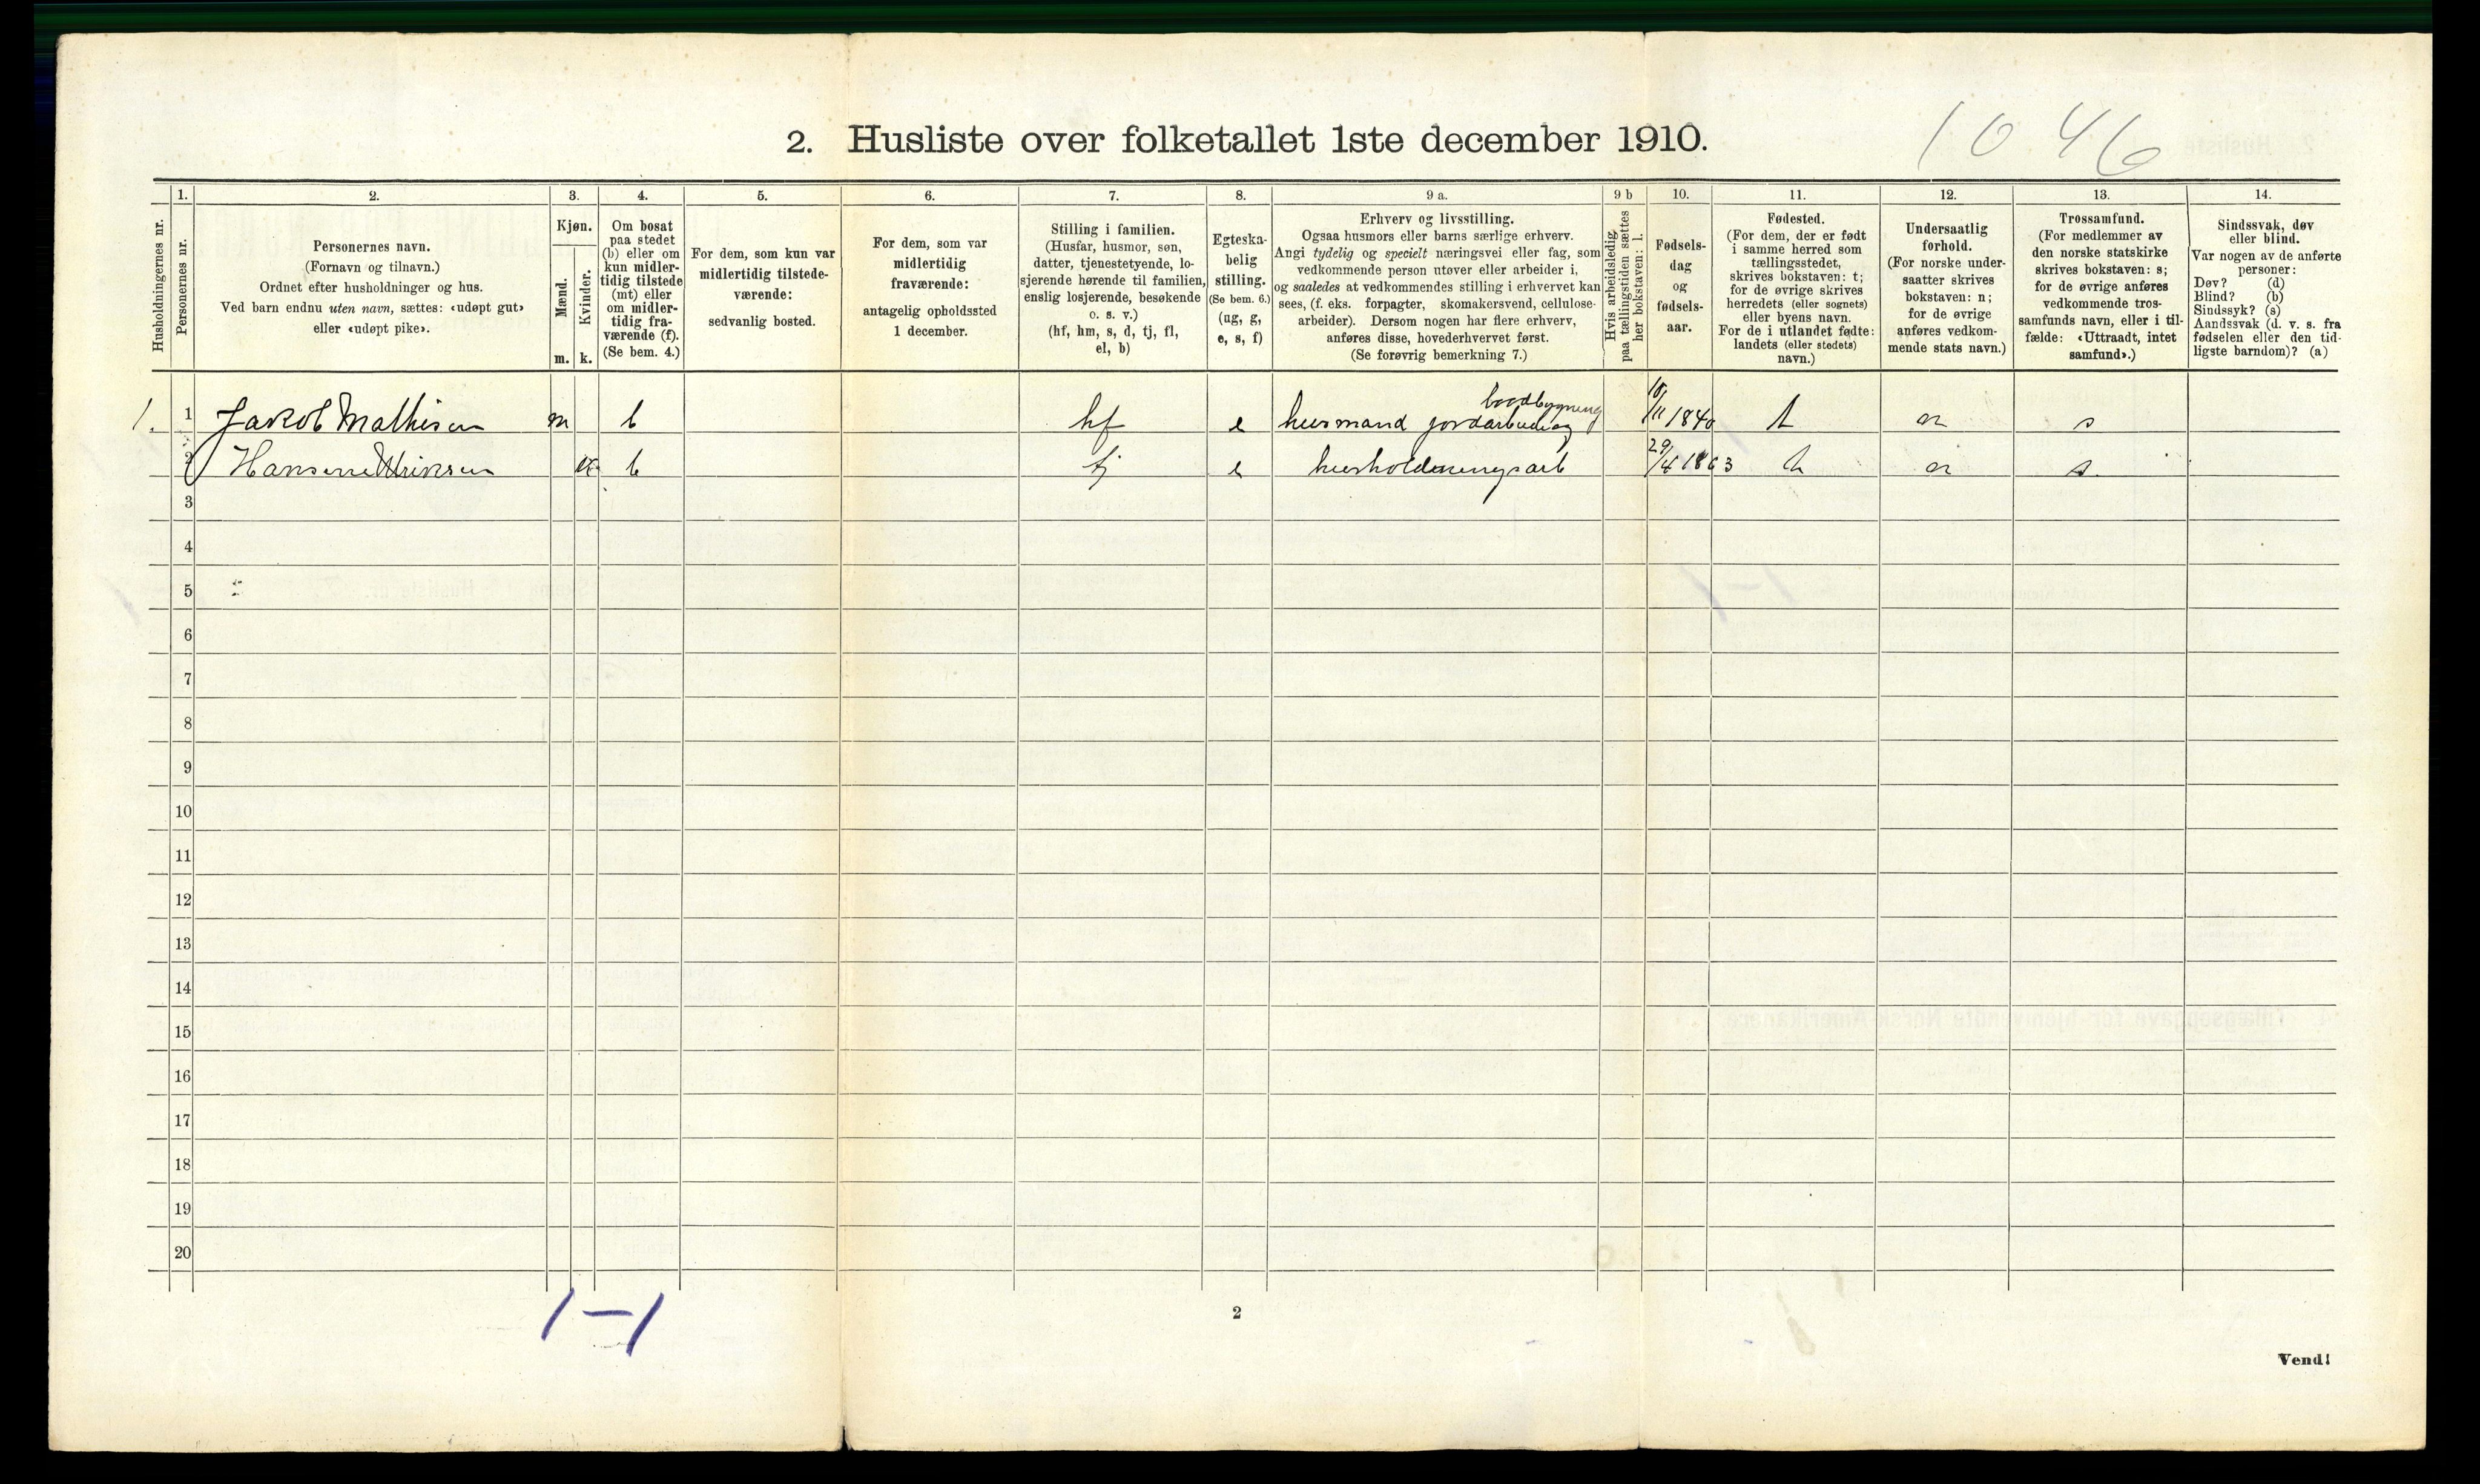 1046
2. Husliste over folketallet 1ste december 1910.
Husholdningernes nr.
1.
Personernes nr.
2.
Personernes navn.
(Fornavn og tilnavn.)
Ordnet efter husholdninger og hus.
Ved barn endnu uten navn, sættes: «udøpt gut»
eller «udøpt pike».
3.
Kjøn.
Mænd.
m.
Kvinder.
k.
4.
Om bosat
paa stedet
(b) eller om
kun midler-
tidig tilstede
(mt) eller
om midler-
tidig fra-
værende (f).
(Se bem. 4.)
5.
For dem, som kun var
midlertidig tilstede-
værende:
sedvanlig bosted.
6.
For dem, som var
midlertidig
fraværende:
antagelig opholdssted
1 december.
7.
Stilling i familien.
(Husfar, husmor, søn,
datter, tjenestetyende, lo-
sjerende hørende til familien,
enslig losjerende, besøkende
o. s. v.)
(hf, hm, s, d, tj, fl,
el, b)
8.
Egteska-
belig
stilling.
(Se bem. 6.)
(ug, g,
e, s, f)
9 a.
Erhverv og livsstilling.
Ogsaa husmors eller barns særlige erhverv.
Angi tydelig og specielt næringsvei eller fag, som
vedkommende person utøver eller arbeider i,
og saaledes at vedkommendes stilling i erhvervet kan
sees, (f. eks. forpagter, skomakersvend, cellulose-
arbeider). Dersom nogen har flere erhverv,
anføres disse, hovederhvervet først.
(Se forøvrig bemerkning 7.)
9 b
Hvis arbeidsledig
paa tællingstiden sættes
her bokstaven: l.
10.
Fødsels-
dag
og
fødsels-
aar.
11.
Fødested.
(For dem, der er født
i samme herred som
tællingsstedet,
skrives bokstaven: t;
for de øvrige skrives
herredets (eller sognets)
eller byens navn.
For de i utlandet fødte:
landets (eller stedets)
navn.)
12.
Undersaatlig
forhold.
(For norske under-
saatter skrives
bokstaven: n;
for de øvrige
anføres vedkom-
mende stats navn.)
13.
Trossamfund.
(For medlemmer av
den norske statskirke
skrives bokstaven: s;
for de øvrige anføres
vedkommende tros-
samfunds navn, eller i til-
fælde: «Uttraadt, intet
samfund».)
14.
Sindssvak, døv
eller blind.
Var nogen av de anførte
personer:
Døv? (d)
Blind? (b)
Sindssyk? (s)
Aandssvak (d. v. s. fra
fødselen eller den tid-
ligste barndom)? (a)
1. 1 Jakob Mathisen m b hf e husmand jordarbeide og 10/11 1840 t n s
2 k b tj e husholdningsarb 29/4 1863 n s
3
4
5
6
7
8
9
10
11
12
13
14
15
16
17
18
19
20
1-1
2
Vend!